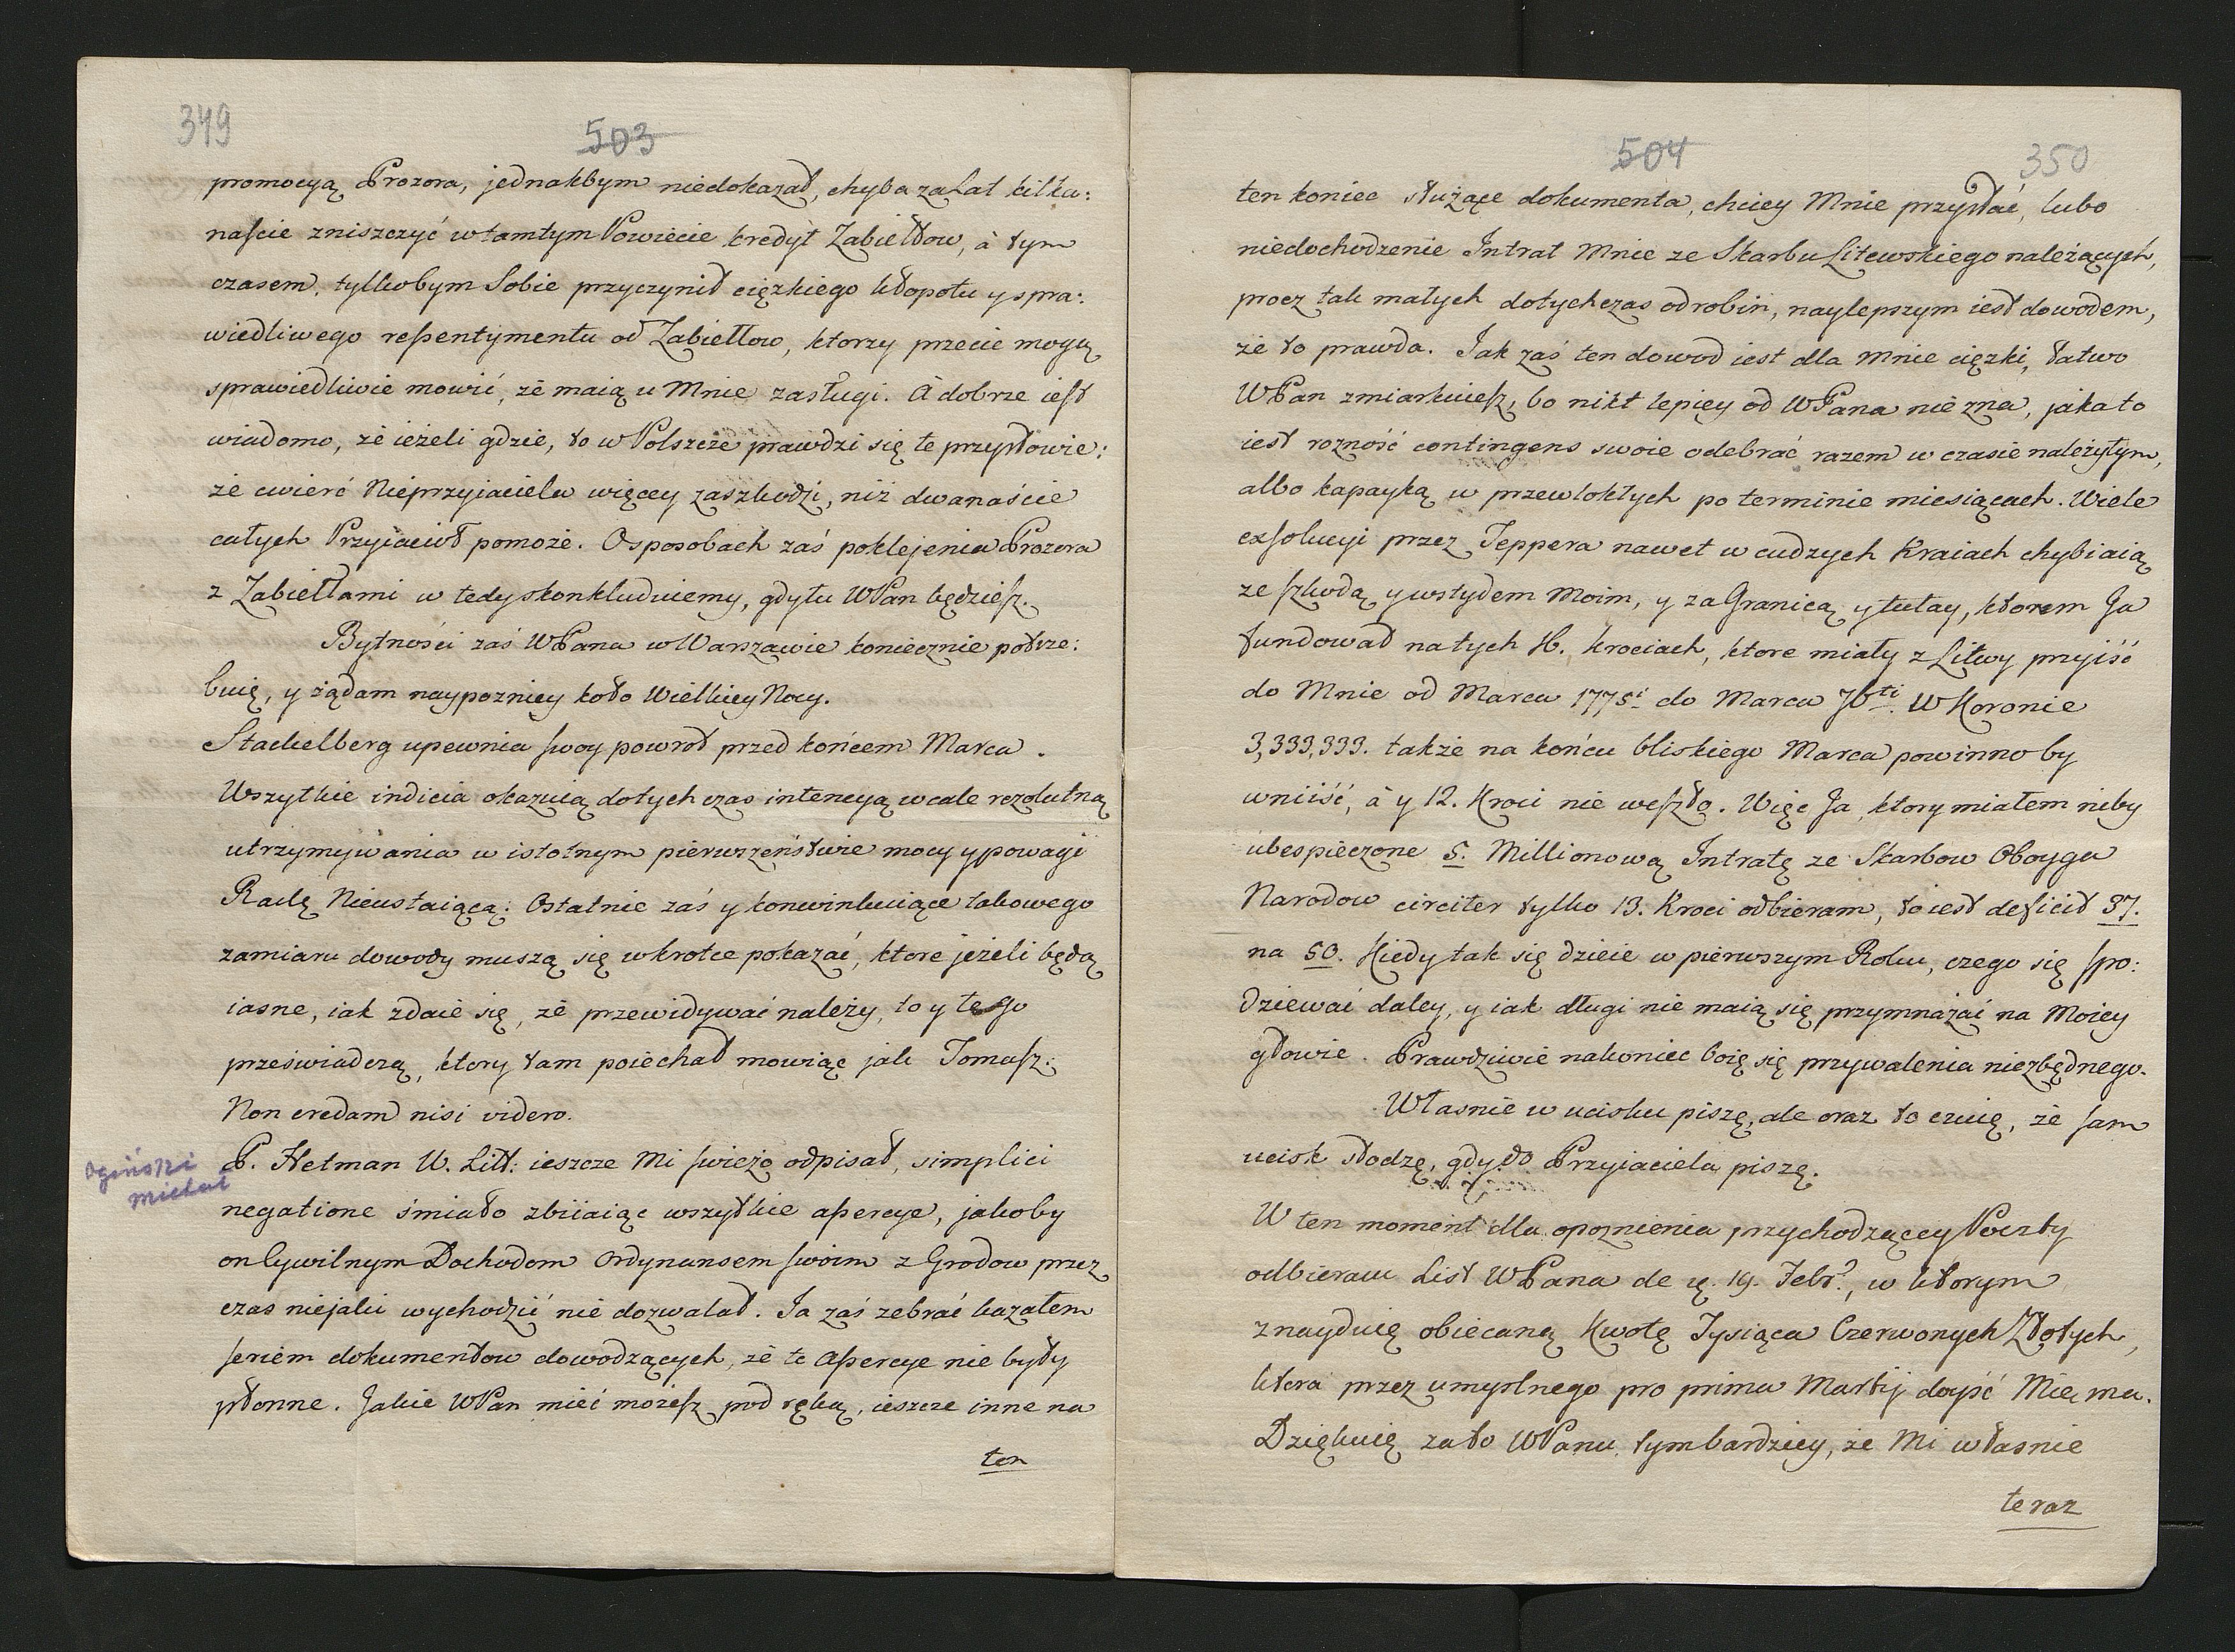 349
503
promocyą Prozora, jednakbym niedokazał, chyba za Lat kilka:
naście zniszczyć w tamtym Powiecie kredyt Zabiełłow, à tym
czasem, tylkobym Sobie przyczynił ciężkiego kłopotu y spra:
wiedliwego ressentymentu od Zabiełłow, ktorzy przecie mogą
sprawiedliwie mowić, że maią u Mnie zasługi. A dobrze iest
wiadomo, że ieżeli gdzie, to w Polszcze prawdzi się te przysłowie:
że cwierć Nieprzyiaciela więcey zaszkodzi, niż dwanaście
całych Przyiacioł pomoże. O sposobach zaś poklejenia Prozora
z Zabiełłami w tedy skonkluduiemy, gdy tu WPan będziesz.
Bytności zaś WPana w Warszawie koniecznie potrze:
buię, y żądam naypozniey koło Wielkiey Nocy.
Stackelberg upewnia swoy powrot przed końcem Marca.
Wszytkie indicia okazuią dotychczas intencyą wcale rezolutną
utrzymywania w istotnym pierwszeństwie mocy y powagi
Radę Nieustaiącą: Ostatnie zaś y konwinkuiące takowego
zamiaru dowody muszą się wkrotce pokazać, ktore jeżeli będą
iasne, iak zdaie się, że przewidywać należy, to y tego
przeświadczą, ktory tam poiechał mowiąc jak Tomasz:
Non credam nisi videro.
Ogiński
Michał
P. Hetman W. Litt: ieszcze Mi swieżo odpisał, simplici
negatione śmiało zbiiaiąc wszytkie assercye, jakoby
on Cywilnym Dochodom Ordynansem swoim z Grodow przez
czas niejaki wychodzić nie dozwalał. Ja zaś zebrać kazałem
seriem dokumentow dowodzących, że te assercye nie były
płonne. Jakie WPan mieć możesz pod ręką, ieszcze inne na
ten
504
350
ten koniec służące dokumenta, chciey Mnie przysłać, lubo
niedochodzenie Intrat Mnie ze Skarbu Litewskiego należących,
procz tak małych dotychczas odrobin, naylepszym iest dowodem,
że to prawda. Jak zaś ten dowod iest dla Mnie cięzki, łatwo
WPan zmiarkuiesz, bo nikt lepiey od WPana nie zna, jaka to
iest rozność contingens swoie odebrać razem w czasie należytym,
albo kapayką w przewlokłych po terminie miesiącach. Wiele
exsolucyi przez Teppera nawet w cudzych Kraiach chybiaią
ze szkodą y wstydem Moim, y za Granicą y tutay, ktorem Ja
fundował na tych 16. krociach, ktore miały z Litwy przyiść
do Mnie od Marca 1775i do Marca 76ti. W Koronie
3,333,333. także na końcu bliskiego Marca powinno by
wniiść, à y 12. Kroci nie weszło. Więc Ja, ktory miałem niby
ubespieczone 5. Millionową Intratę ze Skarbow Oboyga
Narodow circiter tylko 13. Kroci odbieram, to iest deficit 37.
na 50. Kiedy tak się dzieie w pierwszym Roku, czego się spo:
dziewać daley, y iak długi nie maią się przymnażać na Moiey
głowie. Prawdziwie nakoniec boię się przywalenia niezbędnego.
Własnie w ucisku piszę, ale oraz to czuię, że sam
ucisk słodzę, gdy do Przyiaciela piszę.
W ten moment dla opoznienia przychodzącey Poczty
odbieram List WPana de 19. Febr:, w ktorym
znayduię obiecaną Kwotę Tysiąca Czerwonych Złotych,
ktora przez umyslnego pro prima Martij doyść Mię ma.
Dziękuię za to WPanu tym bardziey, że Mi własnie
teraz